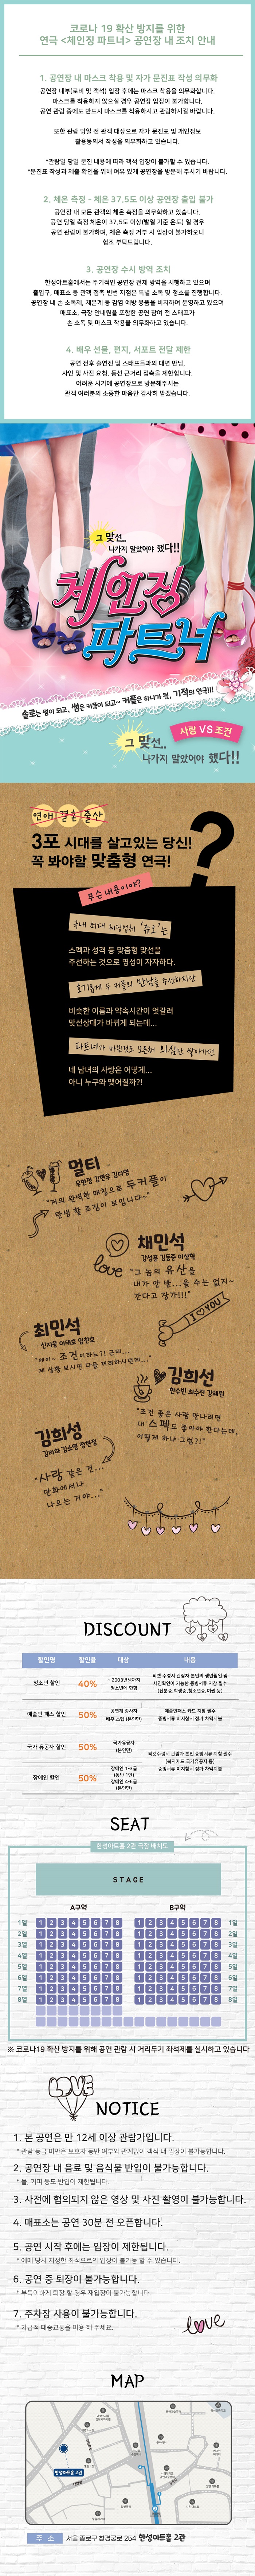 코로나 19 확산 방지를 위한
연극 <체인징 파트너> 공연장 내 조치 안내
1. 공연장 내 마스크 착용 및 자가 문진표 작성 의무화
공연장 내부(로비 및 객석) 입장 후에는 마스크 착용을 의무화합니다.
마스크를 착용하지 않으실 경우 공연장 입장이 불가합니다.
공연 관람 중에도 반드시 마스크를 착용하시고 관람하시길 바랍니다.
또한 관람 당일 전 관객 대상으로 자가 문진표 및 개인정보
활용동의서 작성을 의무화하고 있습니다.
*관람일 당일 문진 내용에 따라 객석 입장이 불가할 수 있습니다.
*문진표 작성과 제출 확인을 위해 여유 있게 공연장을 방문해 주시기 바랍니다.
2. 체온 측정 - 체온 37.5도 이상 공연장 출입 불가
공연장 내 모든 관객의 체온 측정을 의무화하고 있습니다.
공연 당일 측정 체온이 37.5도 이상(발열 기준 온도) 일 경우
공연 관람이 불가하며, 체온 측정 거부 시 입장이 불가하오니
협조 부탁드립니다.
3. 공연장 수시 방역 조치
한성아트홀에서는 주기적인 공연장 전체 방역을 시행하고 있으며
출입구, 매표소 등 관객 접촉 빈번 지점은 특별 소독 및 청소를 진행합니다.
공연장 내 손 소독제, 체온계 등 감염 예방 용품을 비치하여 운영하고 있으며
매표소, 극장 안내원을 포함한 공연 참여 전 스태프가
손 소독 및 마스크 착용을 의무화하고 있습니다.
4. 배우 선물, 편지, 서포트 전달 제한
공연 전후 출연진 및 스태프들과의 대면 만남,
사인 및 사진 요청, 동선 근거리 접촉을 제한합니다.
어려운 시기에 공연장으로 방문해주시는
관객 여러분의 소중한 마음만 감사히 받겠습니다.
그 맞선..
나가지 말았어야 했다!!
체인징
파트너
솔로는 썸이 되고, 썸은 커플이 되고~ 커플은 하나가 될, 기적의 연극!!!
사랑 VS 조건
그 맞선..
나가지 말았어야 했다!!
연애 결혼 출산
3포 시대를 살고있는 당신!
꼭 봐야할 맞춤형 연극!
?
무슨 내용이야?
국내 최대 웨딩업체 '듀오'는
스펙과 성격 등 맞춤형 맞선을
주선하는 것으로 명성이 자자하다.
호기롭게 두 커플의 만남을 주선하지만
비슷한 이름과 약속시간이 엇갈려
맞선상대가 바뀌게 되는데...
파트너가 바뀐지도 모른채 의심만 쌓여가던
네 남녀의 사랑은 어떻게...
아니 누구와 맺어질까?!
멀티
우현정 김현우 김다영
"거의 완벽한 매칭으로 두커플이
탄생 할 조짐이 보입니다~"
채민석
강성훈 김동준 이상혁
"그 놈의 유산을
내가 안 받...을 수는 없지~
간다고 장가!!!"
love
I ♥ YOU
최민석
신지율 이태호 임찬호
"에이~ 조건이라뇨?! 근데...
제 상황 보시면 다들 꺼려하시던데..."
김희선
한수빈 최수진 강혜원
"조건 좋은 사람 만나려면
내 스펙도 좋아야 한다는데,
어떻게 하나 그럼?!"
김희성
김리하 김소영 정현정
"사랑 같은 건...
만화에서나
나오는 거야..."
DISCOUNT
할인명 할인율 대상 내용
청소년 할인 40% ~ 2003년생까지 청소년에 한함 티켓 수령시 관람자 본인의 생년월일 및 사진확인이 가능한 증빙서류 지참 필수 (신분증,학생증,청소년증,여권 등)
예술인 패스 할인 50% 공연계 종사자 배우,스탭 (본인만) 예술인패스 카드 지참 필수 증빙서류 미지참시 정가 차액지불
국가 유공자 할인 50% 국가유공자 (본인만)
장애인 할인 50% 장애인 1-3급 (동반 1인) 장애인 4-6급 (본인만)
티켓수령시 관람자 본인 증빙서류 지참 필수
(복지카드,국가유공자증 등)
증빙서류 미지참시 정가 차액지불
SEAT
한성아트홀 2관 극장 배치도
STAGE
A구역 B구역
1열 1 2 3 4 5 6 7 8 1 2 3 4 5 6 7 8 1열
2열 1 2 3 4 5 6 7 8 1 2 3 4 5 6 7 8 2열
3열 1 2 3 4 5 6 7 8 1 2 3 4 5 6 7 8 3열
4열 1 2 3 4 5 6 7 8 1 2 3 4 5 6 7 8 4열
5열 1 2 3 4 5 6 7 8 1 2 3 4 5 6 7 8 5열
6열 1 2 3 4 5 6 7 8 1 2 3 4 5 6 7 8 6열
7열 1 2 3 4 5 6 7 8 1 2 3 4 5 6 7 8 7열
8열 1 2 3 4 5 6 7 8 1 2 3 4 5 6 7 8 8열
※ 코로나19 확산 방지를 위해 공연 관람 시 거리두기 좌석제를 실시하고 있습니다
LOVE
NOTICE
1. 본 공연은 만 12세 이상 관람가입니다.
* 관람 등급 미만은 보호자 동반 여부와 관계없이 객석 내 입장이 불가능합니다.
2. 공연장 내 음료 및 음식물 반입이 불가능합니다.
* 물, 커피 등도 반입이 제한됩니다.
3. 사전에 협의되지 않은 영상 및 사진 촬영이 불가능합니다.
4. 매표소는 공연 30분 전 오픈합니다.
5. 공연 시작 후에는 입장이 제한됩니다.
* 예매 당시 지정한 좌석으로의 입장이 불가능 할 수 있습니다.
6. 공연 중 퇴장이 불가능합니다.
* 부득이하게 퇴장 할 경우 재입장이 불가능합니다.
7. 주차장 사용이 불가능합니다.
* 가급적 대중교통을 이용 해 주세요.
love
MAP
한성아트홀 2관
주 소 서울 종로구 창경궁로 254 한성아트홀 2관